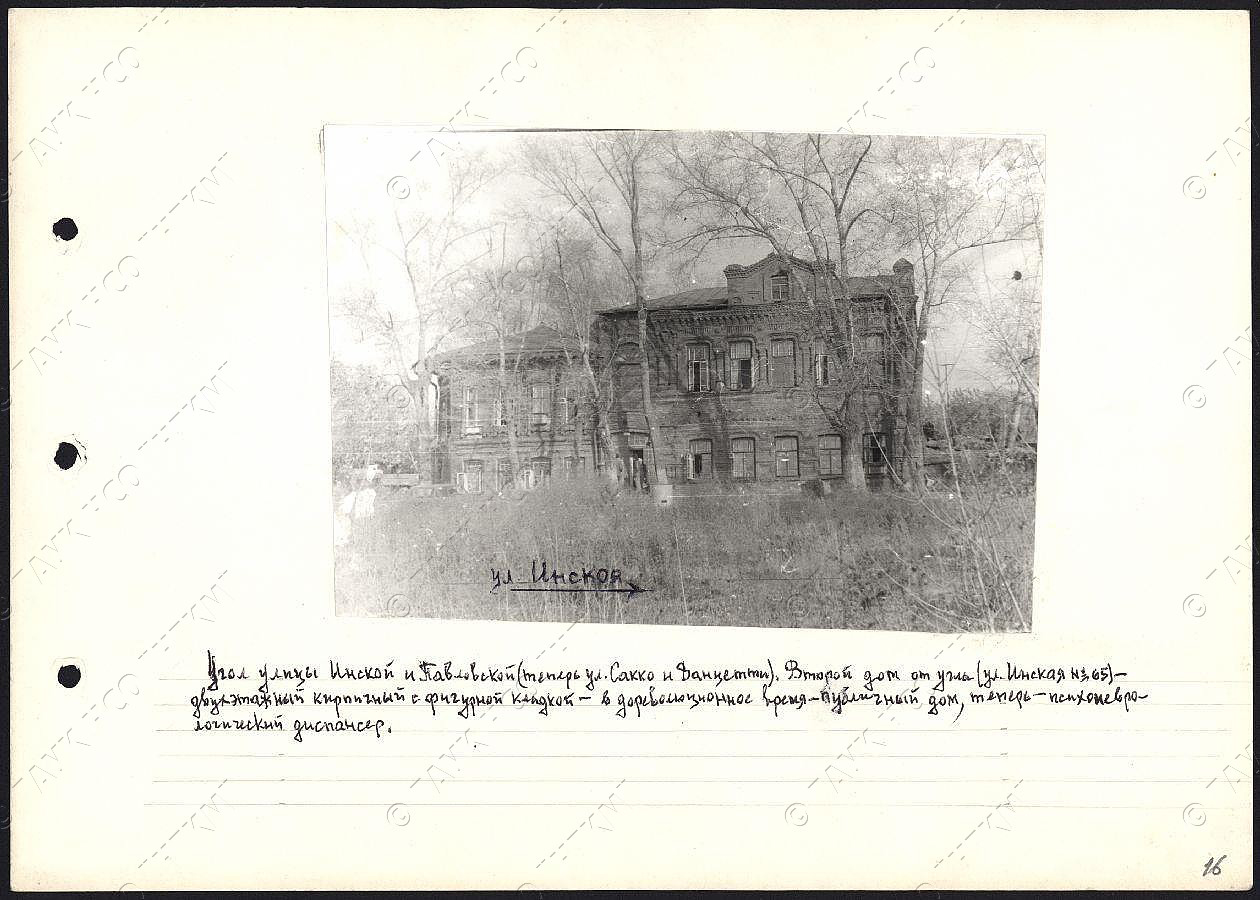 ул. Инская
Угол улицы Инской и Павловской (теперь ул. Сакко и Ванцетти). Второй дом от угла (ул. Инская № 65) –
двухэтажный кирпичный с фигурной кладкой – в дореволюционное время – публичный дом, теперь – психоневро-
логический диспансер.
16